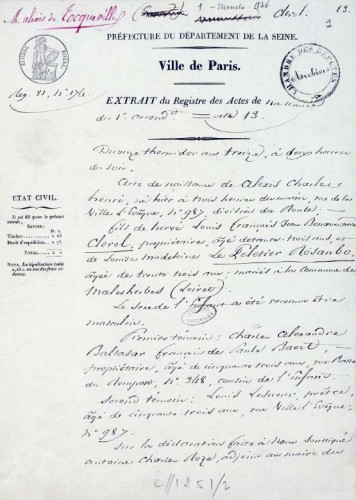 M. Alexis de Tocqueville
1. Manche 1846
dért.
83.
1
PRÉFECTURE DU DÉPARTEMENT DE LA SEINE.
Ville de Paris.
TIMBRE ROYAL
CHAMBRE DES DÉPUTÉS
Archives
Reg. 21, N°
EXTRAIT du Registre des Actes de naissance
du 1er arrondt. = an 13.
Du onze thermidor an treize, à deux heures
du soir.
Acte de naissance de Alexis Charles
henri, né hier à trois heures du matin, rue de la
Ville l'évêque, N° 987, division du Roule.
fils de hervé Louis françois Jean Bonaventure
Clerel, propriétaire, âgé de trente trois ans, et
de Louise madeleine Le Peletier Rosanbo,
âgée de trente trois ans; mariés à la Commune de
malesherbes (Loiret)
Le sexe de l'Enfant a été reconnu être
masculin.
Premier témoin: Charles Alexandre
Baltasar françois de Paule Baert,
propriétaire, âgé de cinquante trois ans, rue Basse
du Rempart, N° 348, cousin de l'enfant.
Second témoin: Louis Lesueur, prêtre,
âgé de cinquante trois ans, rue Ville l'évêque
N° 987.
Sur la déclaration faite à Nous soussigné
antoine Charles Roze, adjoint au maire du
ETAT CIVIL.
Il est dû pour le présent
extrait,
SAVOIR:
Timbre
Droit d'expédition
TOTAL
NOTA. La légalisation
C//1251/2